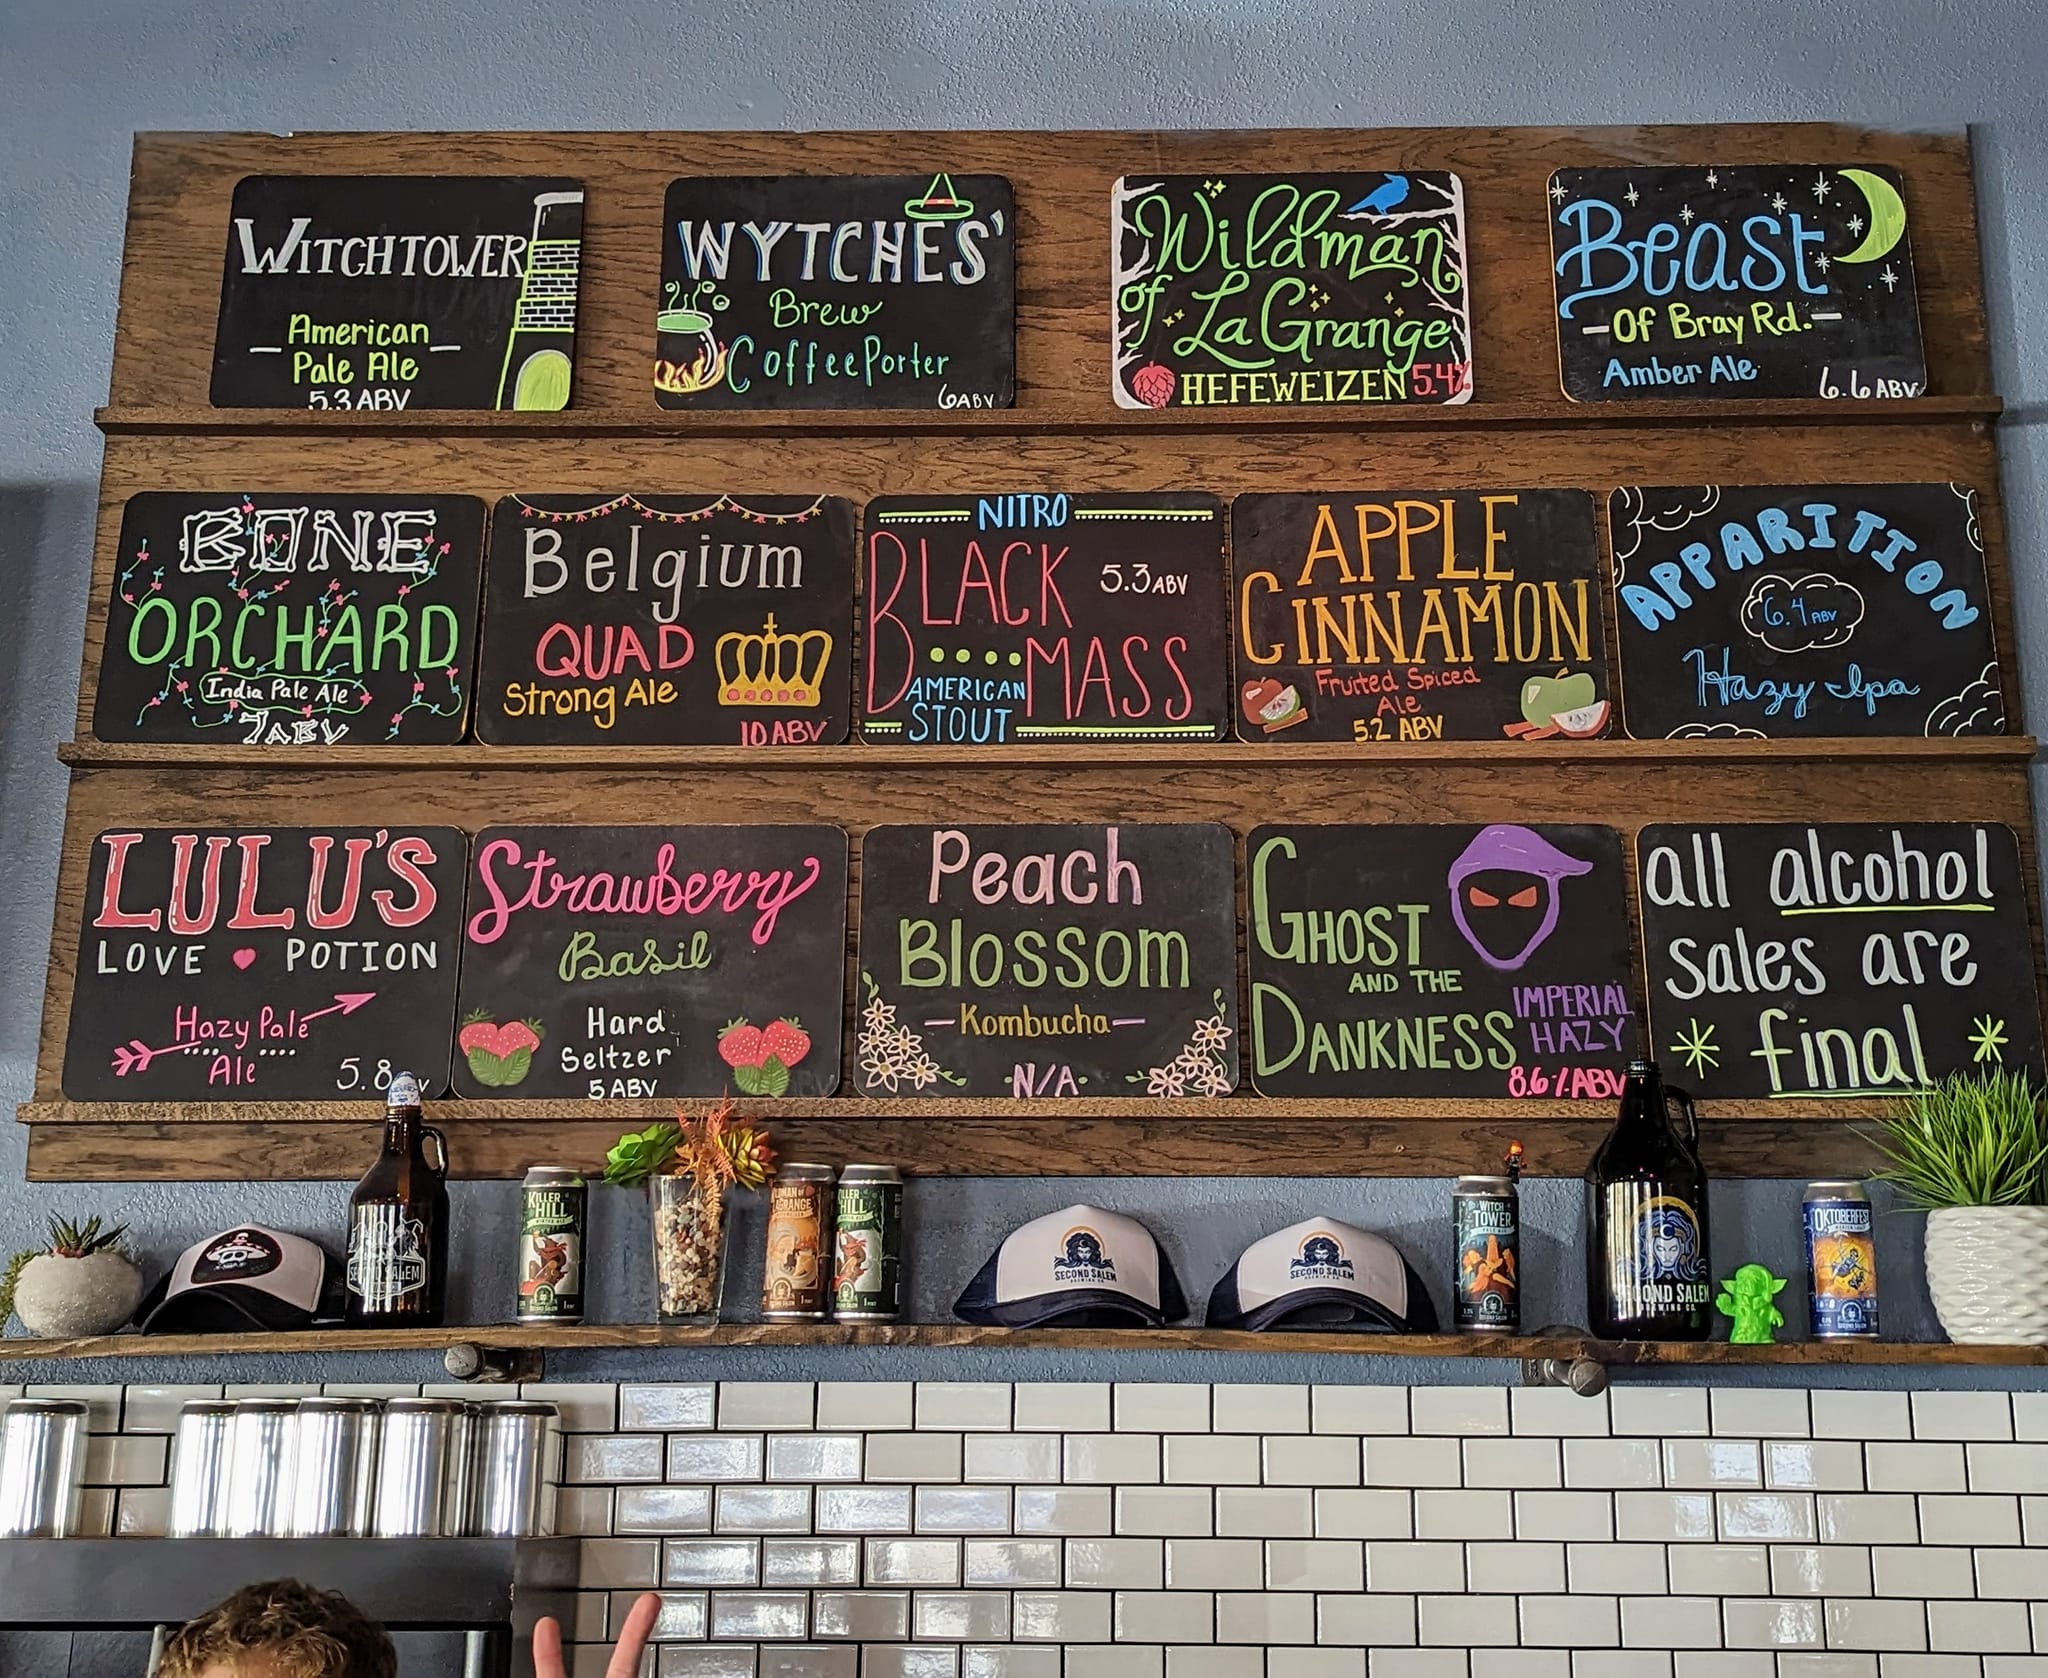 WITCHTOWER
American
Pale Ale
5.3 ABV
WYTCHES'
Brew
Coffee Porter
6 ABV
Wildman
of La Grange
HEFEWEIZEN 5.4%
Beast
-Of Bray Rd.-
Amber Ale
6.6 ABV
BONE
ORCHARD
India Pale Ale
7 ABV
Belgium
QUAD
Strong Ale
10 ABV
NITRO
BLACK
5.3 ABV
MASS
AMERICAN
STOUT
APPLE
CINNAMON
Fruited Spiced
Ale
5.2 ABV
APPARITION
6.4 ABV
Hazy Ipa
LULU'S
LOVE POTION
Hazy Pale
Ale
5.8
Strawberry
Basil
Hard
Seltzer
5 ABV
Peach
Blossom
-Kombucha-
N/A
GHOST
AND THE
DANKNESS
IMPERIAL
HAZY
8.6% ABV
all alcohol
sales are
final
SECOND SALEM
KILLER
HILL
KILLER
HILL
SECOND SALEM
BREWING CO.
SECOND SALEM
BREWING CO.
WITCH
TOWER
SECOND SALEM
BREWING CO.
OKTOBERFEST